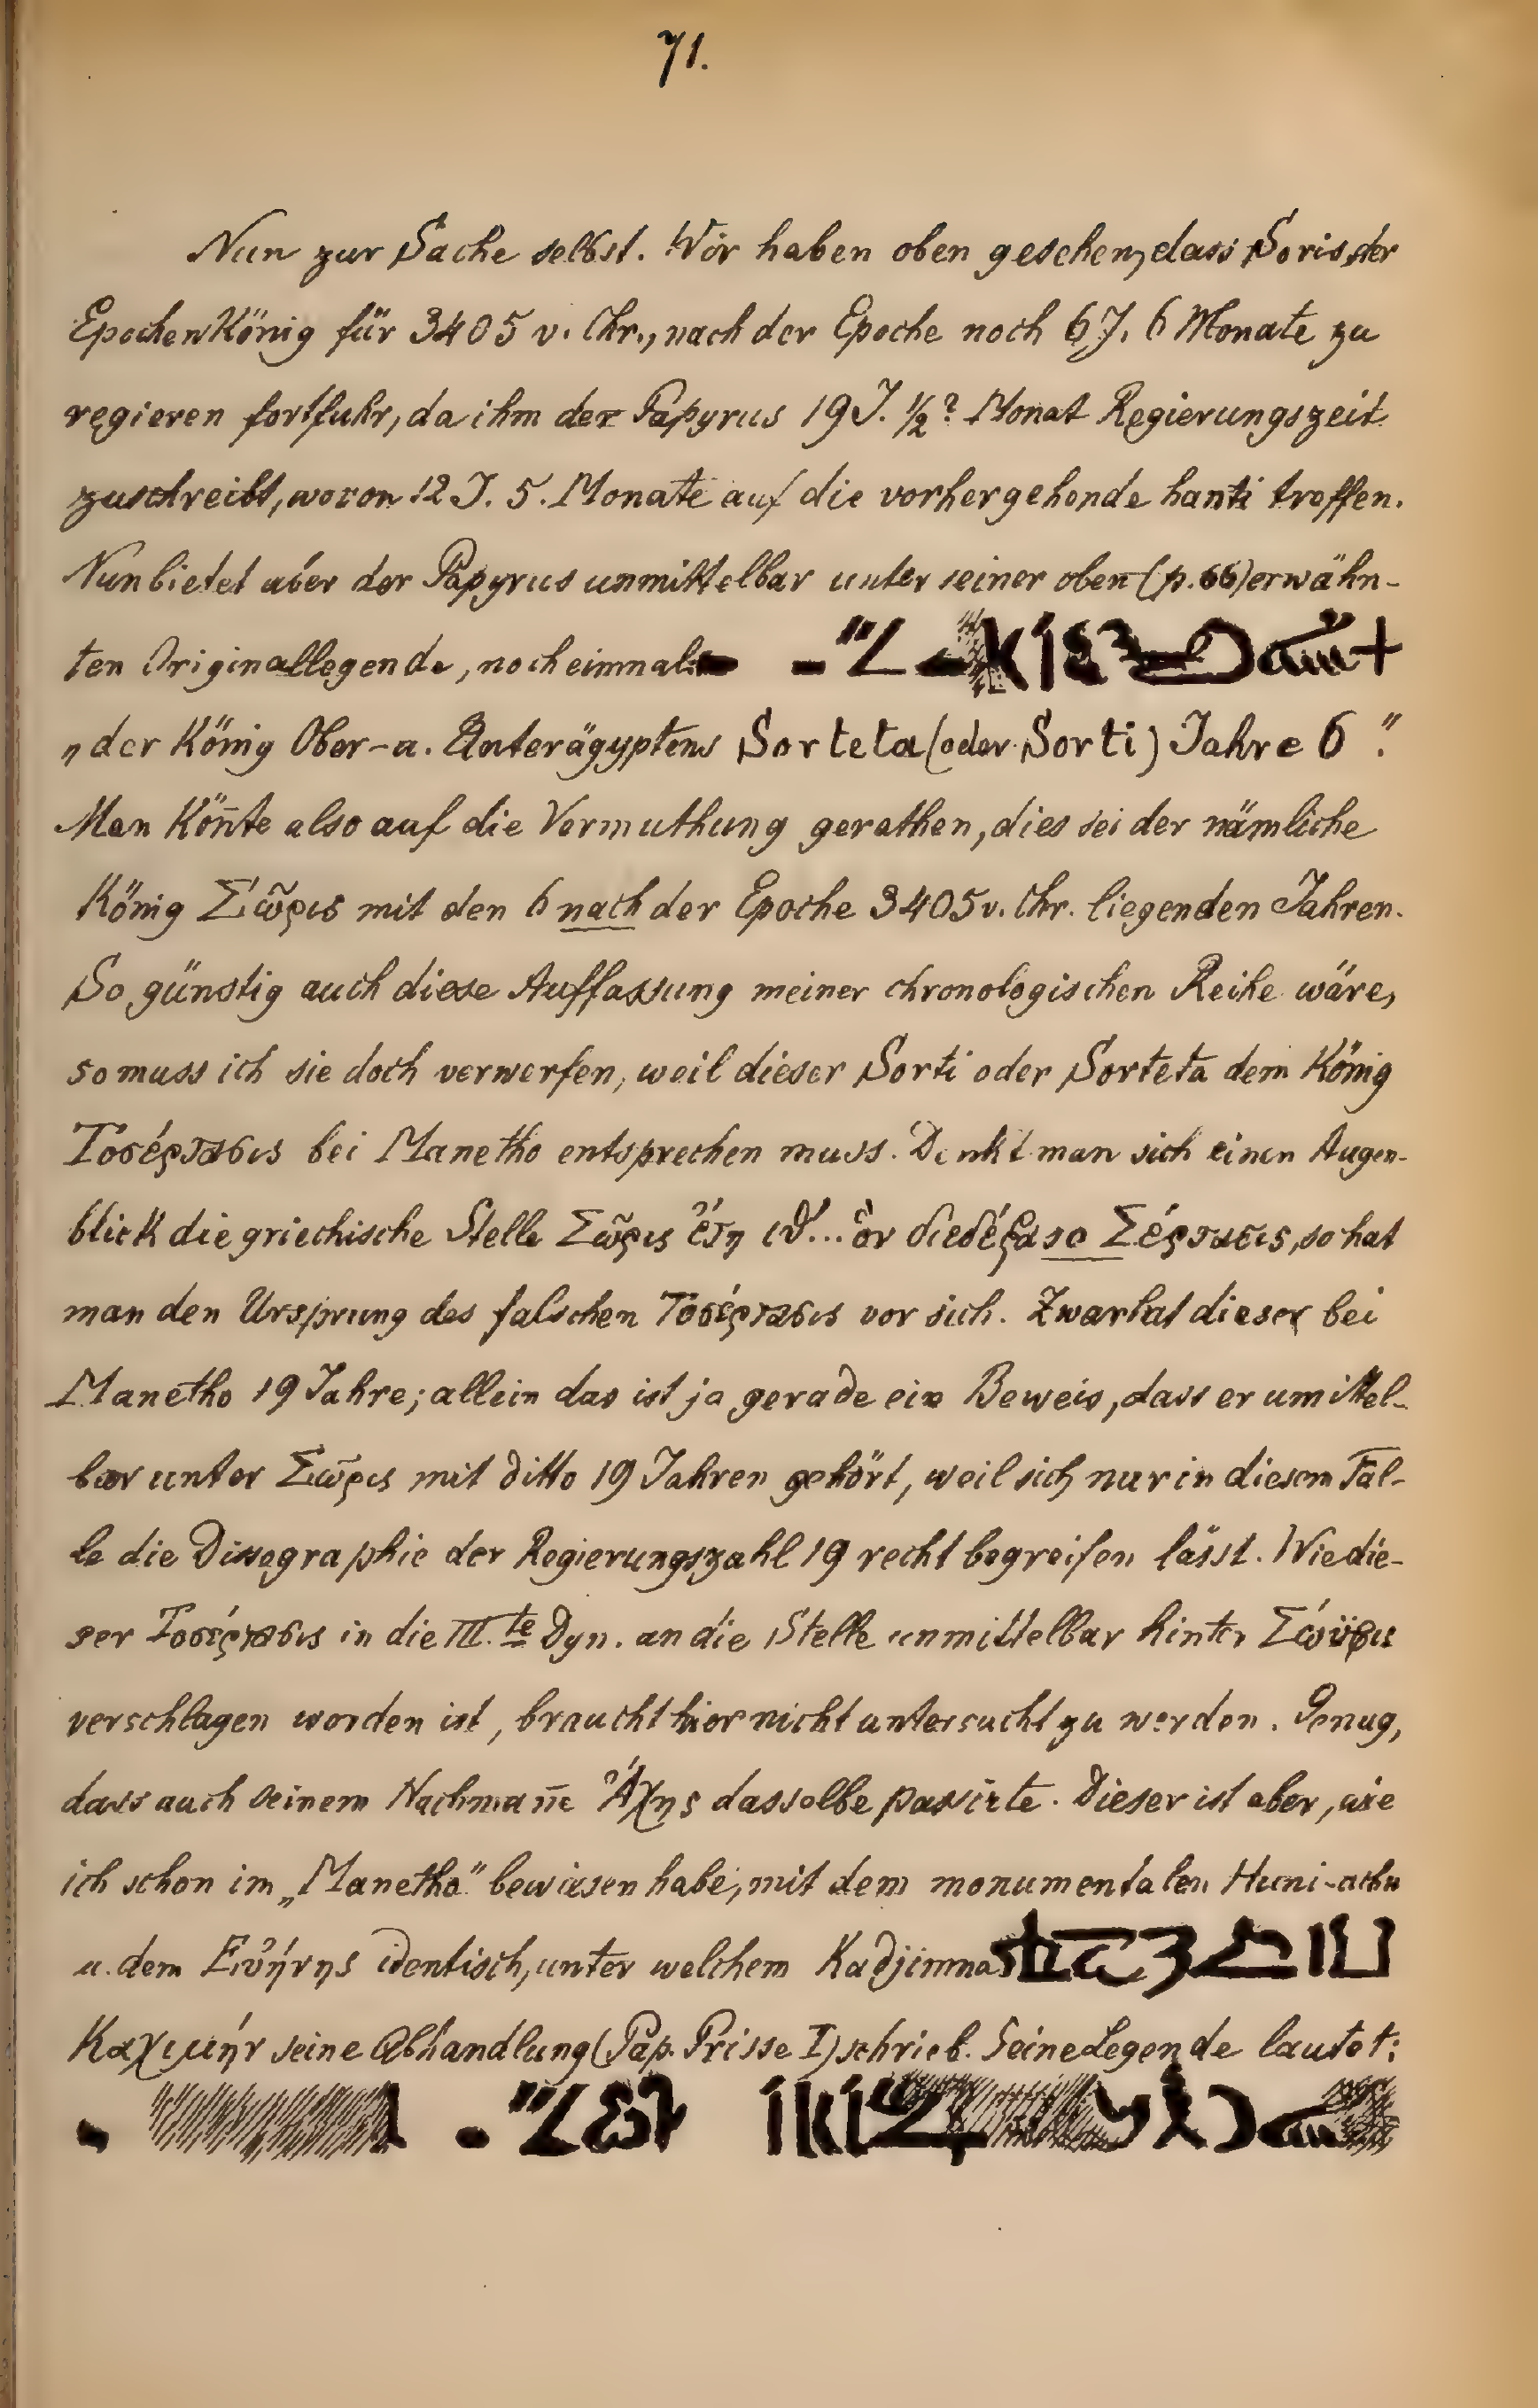 71.
Nun zur Sache selbst. Wir haben oben gesehen, dass Soris, der
Epochenkönig für 3405 v. Chr., nach der Epoche noch 6 J. 6 Monate zu
regieren fortfuhr, da ihm der Papyrus 19 J. ½? Monat Regierungszeit
zuschreibt, wovon 12 J. 5. Monate auf die vorhergehende hanti treffen.
Nun bietet aber der Papyrus unmittelbar unter seiner oben (p. 66) erwähn-
ten Originallegende, noch eimnal:
„der König Ober- u. Unterägyptens Sorteta (oder Sorti) Jahre 6".
Man kön̄te also auf die Vermuthung gerathen, dies sei der nämliche
König Σῶρις mit den 6 nach der Epoche 3405 v. Chr. liegenden Jahren.
So günstig auch diese Auffassung meiner chronologischen Reihe wäre,
so muss ich sie doch verwerfen, weil dieser Sorti oder Sorteta dem König
Τοσέρτασις bei Manetho entsprechen muss. Denkt man sich einen Augen-
blick die griechische Stelle Σῶρις ἔτη ιθ'... ὃν διεδέξατο Σέρτασις, so hat
man den Ursprung des falschen Τοσέρτασις vor sich. Zwar hat dieser bei
Manetho 19 Jahre; allein das ist ja gerade ein Beweis, dass er unmittel-
bar unter Σῶρις mit ditto 19 Jahren gehört, weil sich nur in diesem Fal-
le die Dissographie der Regierungszahl 19 recht begreifen lässt. Wie die-
ser Τοσέρτασις in die III.te Dyn. an die Stelle unmittelbar hinter Σώϋφις
verschlagen worden ist, braucht hier nicht untersucht zu werden. Genug,
dass auch seinem Nachman̄e Ἄχης dasselbe passirte. Dieser ist aber, wie
ich schon im „Manetho" bewiesen habe, mit dem monumentalen Huni-
u. dem identisch, unter welchem Kadjimna
Καχιμήν seine Abhandlung (Pap. Prisse I) schrieb. Seine Legende lautet: